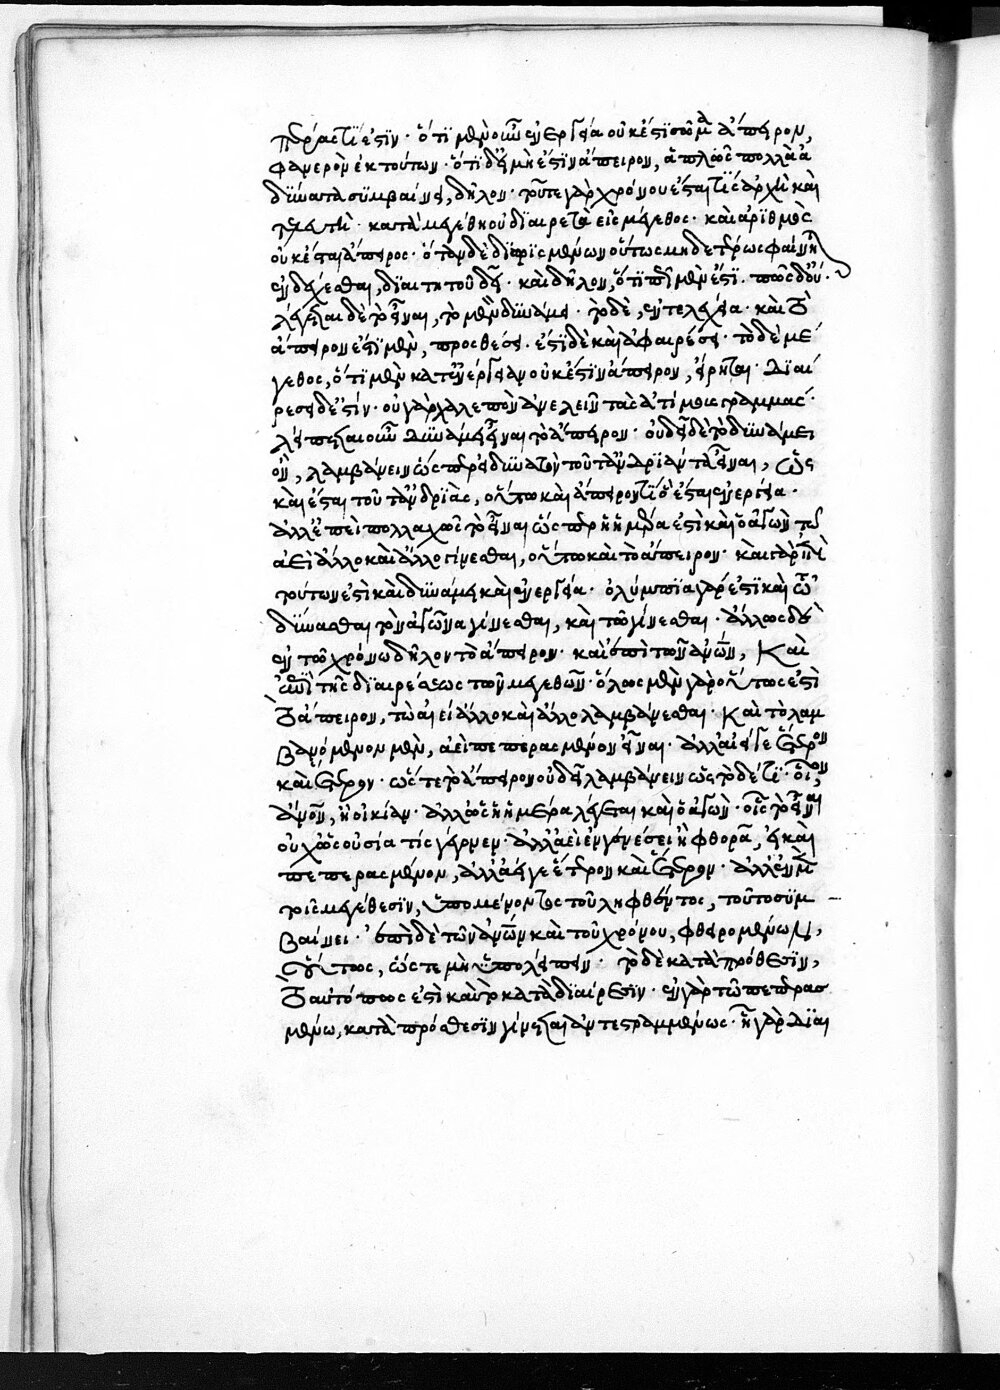 πέρας τί ἐστιν· ὅτι μὲν οὖν ἐνεργεία οὐκ ἔστι σῶμα ἄπειρον,
φανερὸν ἐκ τούτων· ὅτι δ' εἰ μὴ ἔστιν ἄπειρον, ἁπλῶς πολλὰ ἀ
δύνατα συμβαίνει, δῆλον· τοῦ τε γὰρ χρόνου ἔσται τίς ἀρχὴ καὶ
τελευτὴ· καὶ τὰ μεγέθη οὐ διαιρετὰ εἰς μέγεθος· καὶ ἀριθμὸς
οὐκ ἔσται ἄπειρος· ὅταν δὲ διωρισμένων οὕτως μηδετέρως φαίνηται
ἐνδέχεσθαι, διαιτητοῦ δεῖ· καὶ δῆλον, ὅτι πῆ μὲν ἔστι· πῶς δ' οὔ·
λέγεται δὲ τὸ εἶναι, τὸ μὲν δυνάμει· τὸ δὲ, ἐντελεχεία· καὶ τὸ
ἄπειρον ἔστι μὲν, προσθέσει· ἔστι δὲ καὶ ἀφαιρέσει· τὸ δὲ μέ
γεθος, ὅτι μὲν κατ' ἐνέργειαν οὐκ ἔστιν ἄπειρον, εἴρηται· διαι
ρέσει δ' ἐστίν· οὐ γὰρ χαλεπὸν ἀνελεῖν τὰς ἀτόμους γραμμάς·
λείπεται οὖν δυνάμει εἶναι τὸ ἄπειρον· οὐ δεῖ δὲ τὸ δυνάμει
ὂν, λαμβάνειν ὥσπερ εἰ δυνατὸν τοῦτ' ἀνδριάντα εἶναι, ὡς
καὶ ἔσται τοῦτ' ἀνδριὰς, οὕτω καὶ ἄπειρον τί ὃ ἔσται ἐνεργεία·
ἀλλ' ἐπεὶ πολλαχῶς τὸ εἶναι ὥσπερ ἡ ἡμέρα ἐστὶ καὶ ὁ ἀγὼν τῷ
ἀεὶ ἄλλο καὶ ἄλλο γίνεσθαι, οὕτω καὶ τὸ ἄπειρον· καὶ γὰρ ἐπὶ
τούτων ἐστὶ καὶ δυνάμει καὶ ἐνεργεία· ὀλύμπια γάρ ἐστι καὶ τῶ
δύνασθαι τὸν ἀγῶνα γίνεσθαι, καὶ τῶ γίνεσθαι· ἄλλως δὲ
ἐν τῶ χρόνω δῆλον τὸ ἄπειρον· καὶ ἐπὶ τῶν ἀνθρώπων, καὶ
ἐπὶ τῆς διαιρέσεως τῶν μεγεθῶν· ὅλως μὲν γὰρ οὕτως ἐστὶ
τὸ ἄπειρον, τῶ ἀεὶ ἄλλο καὶ ἄλλο λαμβάνεσθαι· καὶ τὸ λαμ
βανόμενον μὲν, ἀεὶ πεπερασμένον εἶναι· ἀλλ' ἀεί γε ἕτερον
καὶ ἕτερον· ὥστε τὸ ἄπειρον οὐ δεῖ λαμβάνειν ὡς τόδε τι· οἷον
ἄνθρωπον, ἢ οἰκίαν· ἀλλ' ὡς ἡ ἡμέρα λέγεται καὶ ὁ ἀγὼν· οἷς τὸ εἶναι
οὐχ ὡς οὐσία τίς γέγονεν· ἀλλ' ἀεὶ ἐν γενέσει ἢ φθορᾶ, εἰ καὶ
πεπερασμένον, ἀλλ' ἀεί γε ἕτερον καὶ ἕτερον· ἀλλ' ἐν μὲν
τοῖς μεγέθεσιν, ὑπομένοντος τοῦ ληφθέντος, τοῦτο συμ
βαίνει· ἐπὶ δὲ τῶν ἀνθρώπων καὶ τοῦ χρόνου, φθειρομένων,
οὕτως, ὥστε μὴ ὑπολείπειν· τὸ δὲ κατὰ πρόσθεσιν,
τὸ αὐτό πως ἐστὶ καὶ τὸ κατὰ διαίρεσιν· ἐν γὰρ τῶ πεπερασ
μένω, κατὰ πρόσθεσιν γίνεται ἀντεστραμμένως· ἧ γὰρ διαι